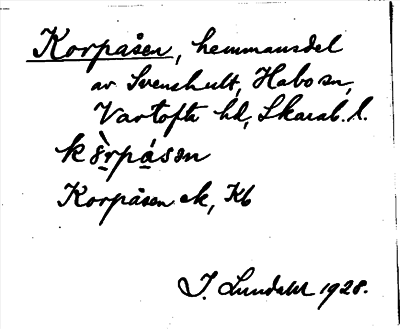 Korpåsen, hemmansdel
av Svenshult, Habo sn,
Vartofta hd, Skarab. l.
kȯ̀rpásən
Korpåsen ek, Kb
J. Lundahl 1928.